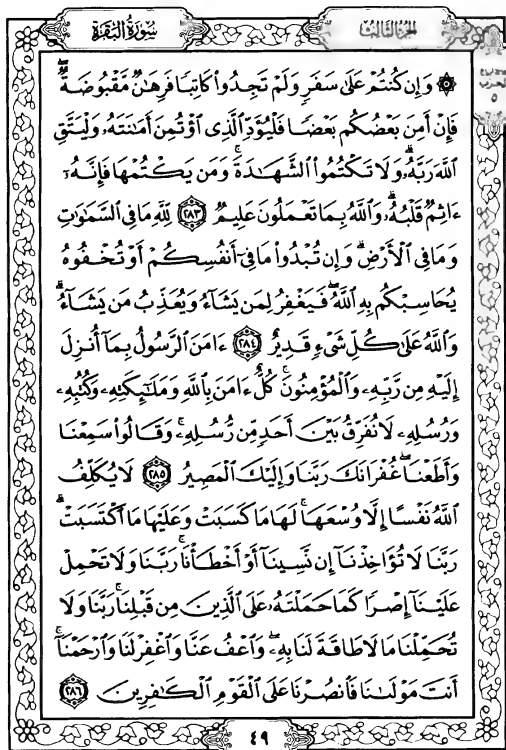 سُورَةُ البَقَرَةِ
الجزءُ الثَّالِثُ
الحزب
٥
۞ وَإِن كُنتُمْ عَلَىٰ سَفَرٍ وَلَمْ تَجِدُوا۟ كَاتِبًا فَرِهَـٰنٌ مَّقْبُوضَةٌ ۖ
فَإِنْ أَمِنَ بَعْضُكُم بَعْضًا فَلْيُؤَدِّ ٱلَّذِى ٱؤْتُمِنَ أَمَـٰنَتَهُۥ وَلْيَتَّقِ
ٱللَّهَ رَبَّهُۥ ۗ وَلَا تَكْتُمُوا۟ ٱلشَّهَـٰدَةَ ۚ وَمَن يَكْتُمْهَا فَإِنَّهُۥٓ
ءَاثِمٌ قَلْبُهُۥ ۗ وَٱللَّهُ بِمَا تَعْمَلُونَ عَلِيمٌ ٢٨٣ لِّلَّهِ مَا فِى ٱلسَّمَـٰوَٰتِ
وَمَا فِى ٱلْأَرْضِ ۗ وَإِن تُبْدُوا۟ مَا فِىٓ أَنفُسِكُمْ أَوْ تُخْفُوهُ
يُحَاسِبْكُم بِهِ ٱللَّهُ ۖ فَيَغْفِرُ لِمَن يَشَآءُ وَيُعَذِّبُ مَن يَشَآءُ ۗ
وَٱللَّهُ عَلَىٰ كُلِّ شَىْءٍ قَدِيرٌ ٢٨٤ ءَامَنَ ٱلرَّسُولُ بِمَآ أُنزِلَ
إِلَيْهِ مِن رَّبِّهِۦ وَٱلْمُؤْمِنُونَ ۚ كُلٌّ ءَامَنَ بِٱللَّهِ وَمَلَـٰٓئِكَتِهِۦ وَكُتُبِهِۦ
وَرُسُلِهِۦ لَا نُفَرِّقُ بَيْنَ أَحَدٍ مِّن رُّسُلِهِۦ ۚ وَقَالُوا۟ سَمِعْنَا
وَأَطَعْنَا ۖ غُفْرَانَكَ رَبَّنَا وَإِلَيْكَ ٱلْمَصِيرُ ٢٨٥ لَا يُكَلِّفُ
ٱللَّهُ نَفْسًا إِلَّا وُسْعَهَا ۚ لَهَا مَا كَسَبَتْ وَعَلَيْهَا مَا ٱكْتَسَبَتْ ۗ
رَبَّنَا لَا تُؤَاخِذْنَآ إِن نَّسِينَآ أَوْ أَخْطَأْنَا ۚ رَبَّنَا وَلَا تَحْمِلْ
عَلَيْنَآ إِصْرًا كَمَا حَمَلْتَهُۥ عَلَى ٱلَّذِينَ مِن قَبْلِنَا ۚ رَبَّنَا وَلَا
تُحَمِّلْنَا مَا لَا طَاقَةَ لَنَا بِهِۦ ۖ وَٱعْفُ عَنَّا وَٱغْفِرْ لَنَا وَٱرْحَمْنَآ ۚ
أَنتَ مَوْلَىٰنَا فَٱنصُرْنَا عَلَى ٱلْقَوْمِ ٱلْكَـٰفِرِينَ ٢٨٦
٤٩